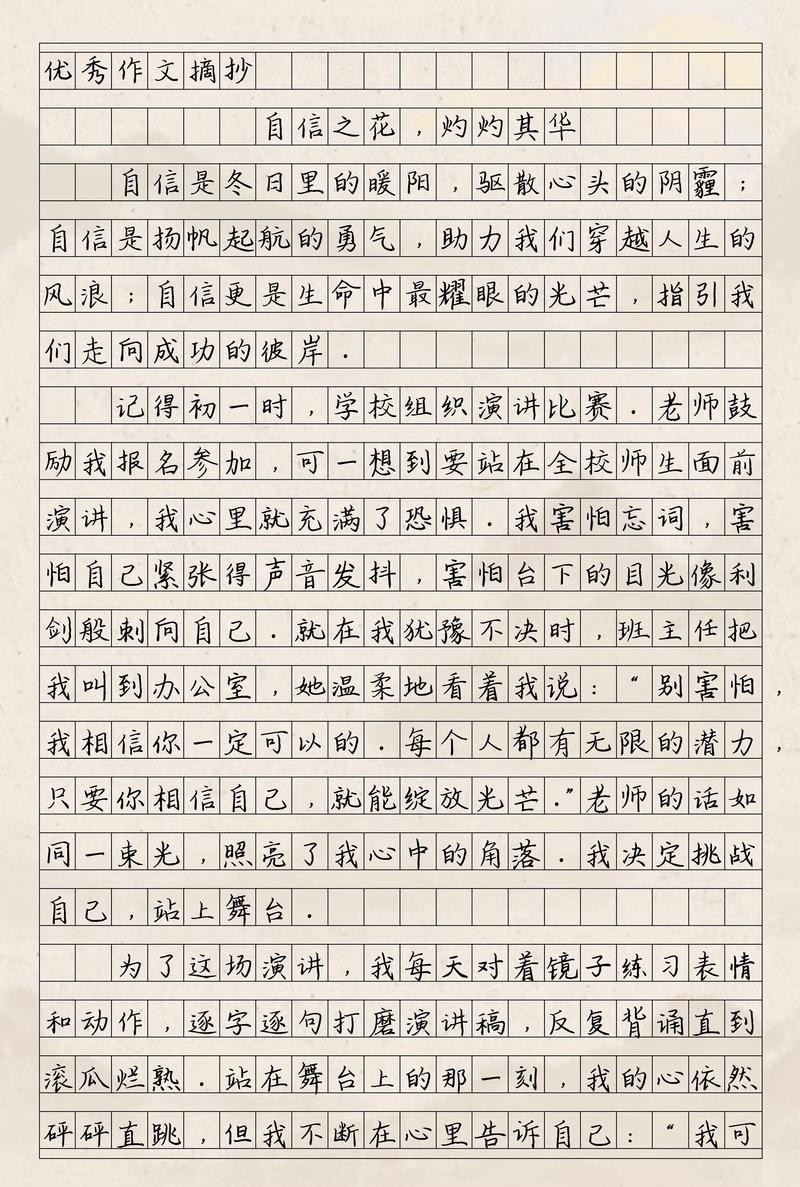 优秀作文摘抄
自信之花，灼灼其华
自信是冬日里的暖阳，驱散心头的阴霾；
自信是扬帆起航的勇气，助力我们穿越人生的
风浪；自信更是生命中最耀眼的光芒，指引我
们走向成功的彼岸．
记得初一时，学校组织演讲比赛．老师鼓
励我报名参加，可一想到要站在全校师生面前
演讲，我心里就充满了恐惧．我害怕忘词，害
怕自己紧张得声音发抖，害怕台下的目光像利
剑般刺向自己．就在我犹豫不决时，班主任把
我叫到办公室，她温柔地看着我说：“别害怕，
我相信你一定可以的．每个人都有无限的潜力，
只要你相信自己，就能绽放光芒．”老师的话如
同一束光，照亮了我心中的角落．我决定挑战
自己，站上舞台．
为了这场演讲，我每天对着镜子练习表情
和动作，逐字逐句打磨演讲稿，反复背诵直到
滚瓜烂熟．站在舞台上的那一刻，我的心依然
砰砰直跳，但我不断在心里告诉自己：“我可